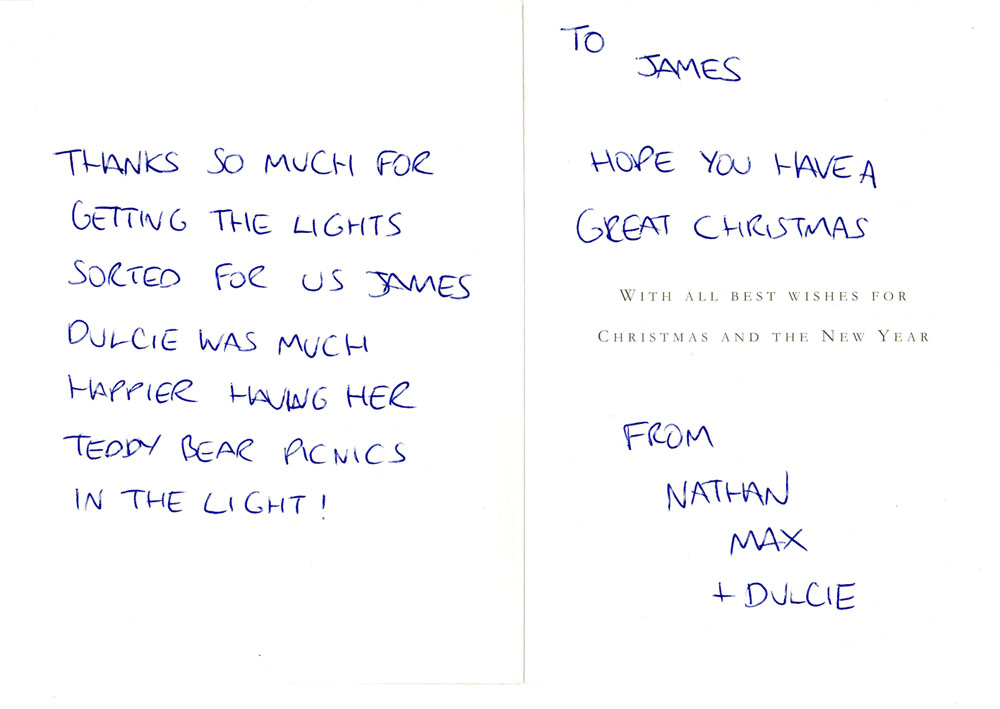 THANKS SO MUCH FOR
GETTING THE LIGHTS
SORTED FOR US JAMES
DULCIE WAS MUCH
HAPPIER HAVING HER
TEDDY BEAR PICNICS
IN THE LIGHT!
TO
JAMES
HOPE YOU HAVE A
GREAT CHRISTMAS
WITH ALL BEST WISHES FOR
CHRISTMAS AND THE NEW YEAR
FROM
NATHAN
MAX
+ DULCIE